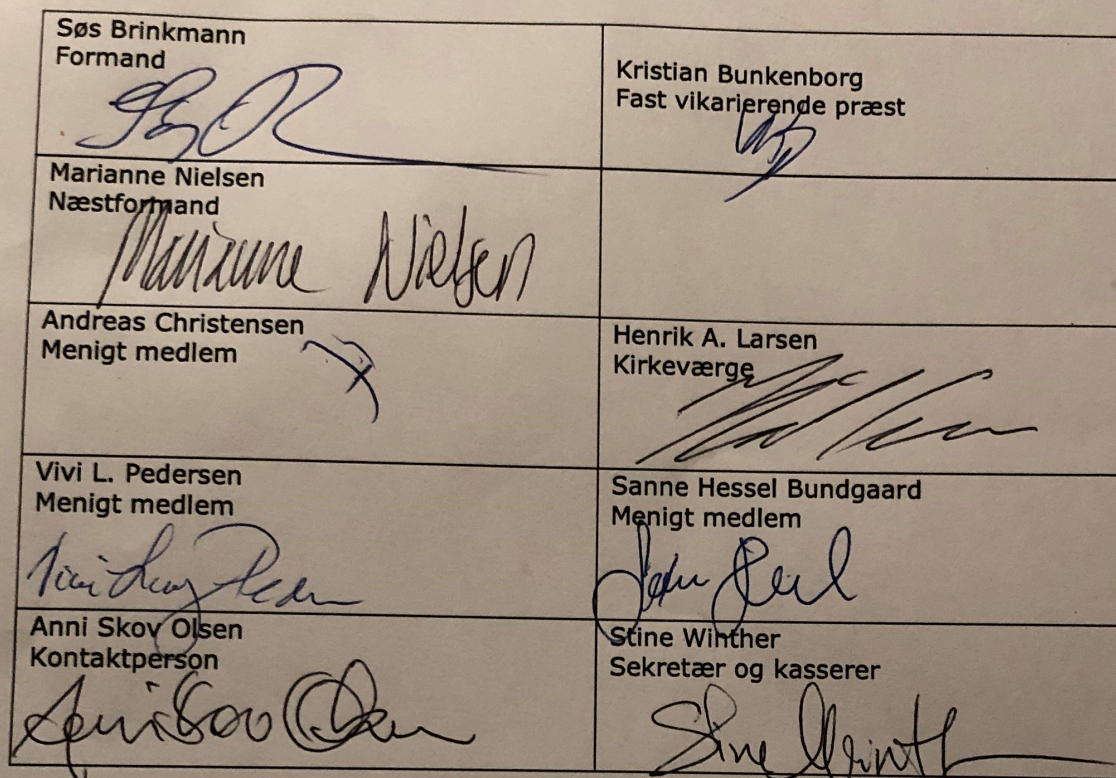 Søs Brinkmann
Formand
Kristian Bunkenborg
Fast vikarierende præst
Marianne Nielsen
Næstformand
Marianne Nielsen
Andreas Christensen
Menigt medlem
Henrik A. Larsen
Kirkeværge
Vivi L. Pedersen
Menigt medlem
Sanne Hessel Bundgaard
Menigt medlem
Anni Skov Olsen
Kontaktperson
Anni Skov Olsen
Stine Winther
Sekretær og kasserer
Stine Winth